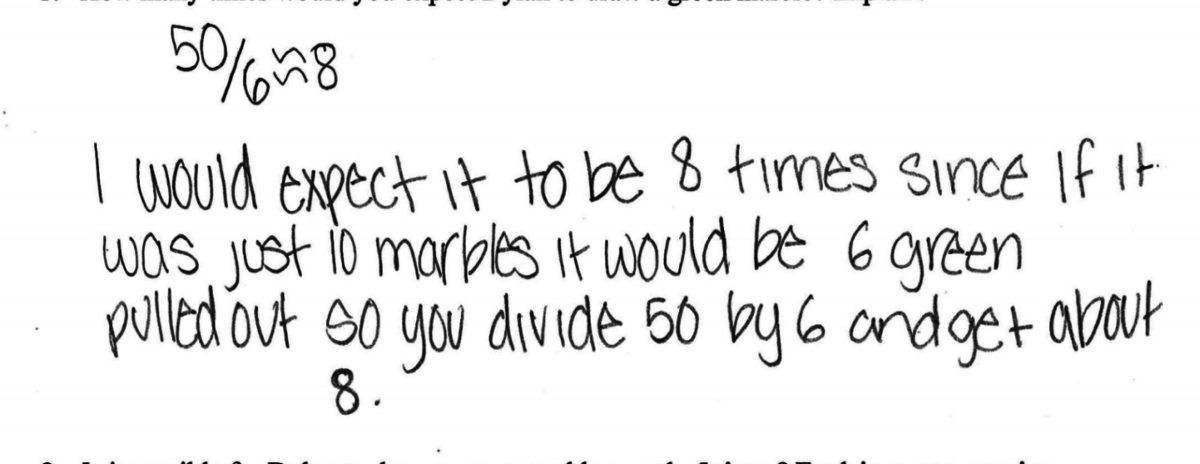 50/6≈8
I would expect it to be 8 times since if it
was just 10 marbles it would be 6 green
pulled out so you divide 50 by 6 and get about
8.